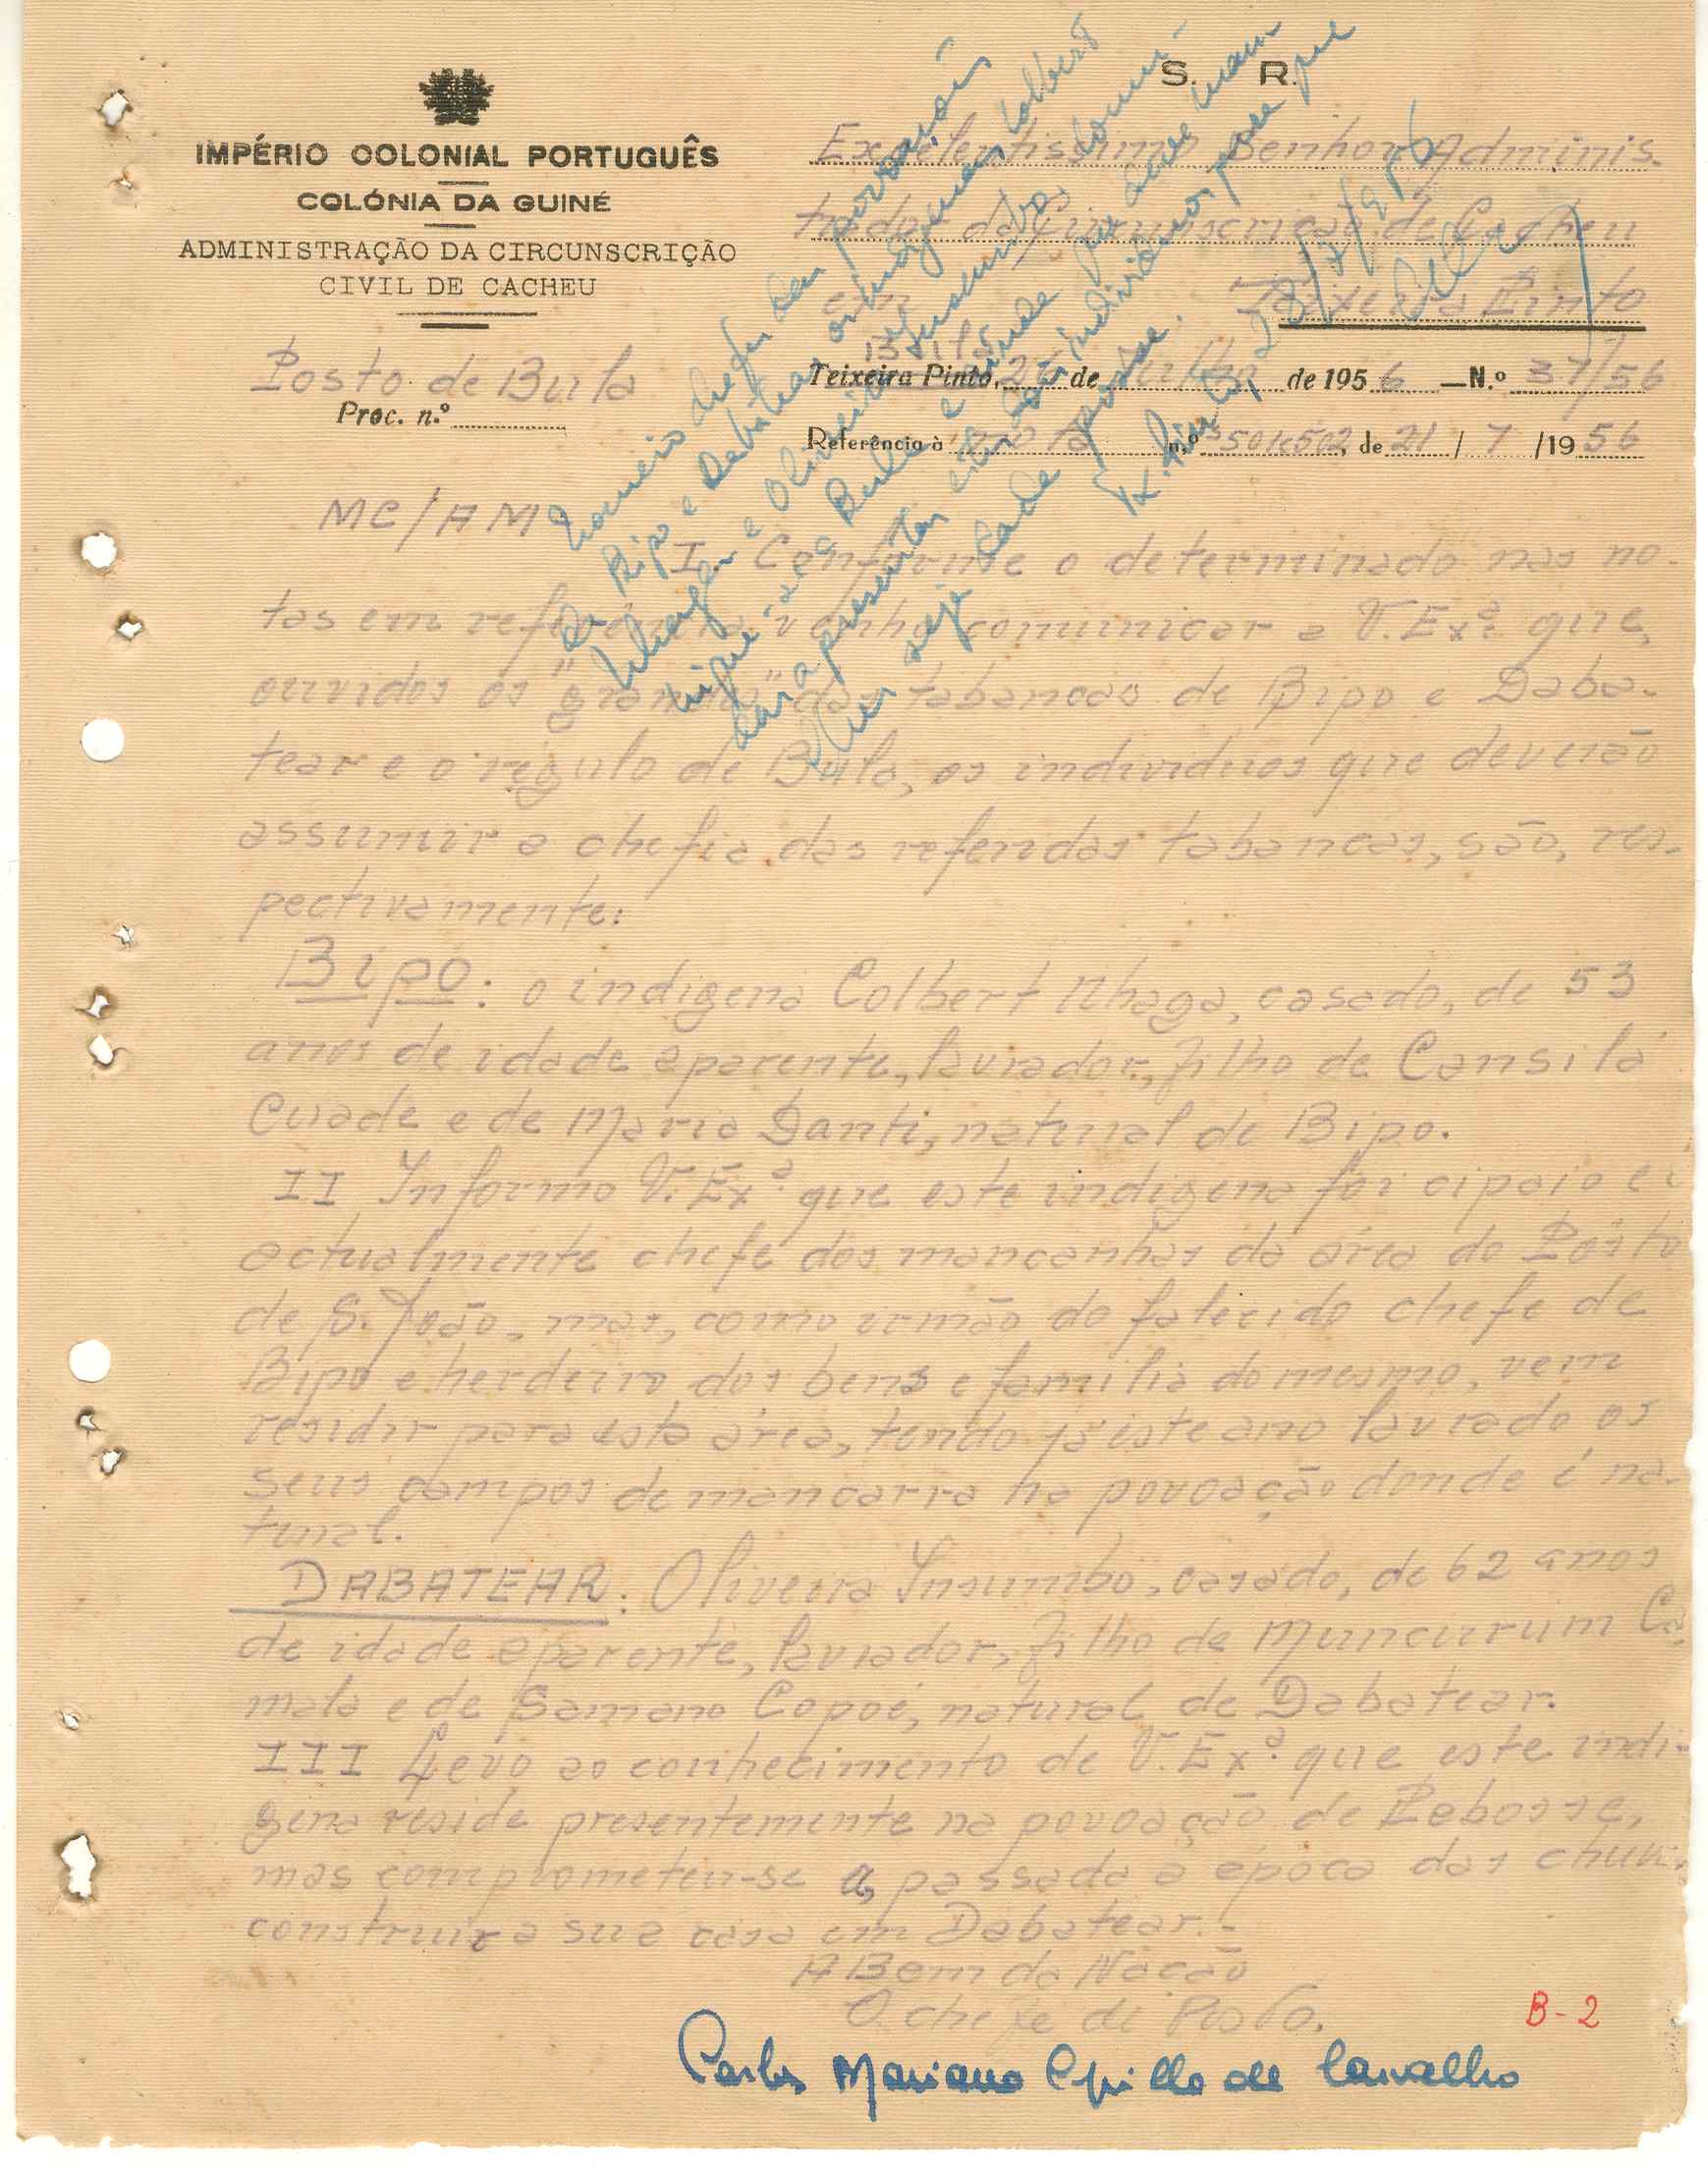 S. R.
IMPÉRIO COLONIAL PORTUGUÊS
COLÓNIA DA GUINÉ
ADMINISTRAÇÃO DA CIRCUNSCRIÇÃO
CIVIL DE CACHEU
Excelentissimo Senhor Adminis
trador da Circunscrição de Cacheu
em
Teixeira Pinto
Posto de Bula
Proc. n.º
Bula
Teixeira Pinto, de Julho de 1956 — N.º 37/56
Referência à nota n.º 501e502, de 21/7/1956
MC/AM
Nomeio chefes das povoações
de Bipo e Dabatear os indígenas Colbert
Nhaga e Oliveira Insumbo. Comuni-
que-se a Bula e
apresentar estes indivíduos para que
lhes seja dada posse.
I. Conforme o determinado nas no-
tas em referência venho comunicar a V. Exª. que,
ouvidos os "grandes" das tabancas de Bipo e Daba-
tear e o régulo de Bula, os individuos que deverão
assumir a chefia das referidas tabancas, são, res-
pectivamente:
Bipo: o indigena Colbert Nhaga, casado, de 53
anos de idade aparente, lavrador, filho de Cansilá
Cuade e de Maria Danti, natural de Bipo.
II Informo V. Exª. que este indigena foi cipaio e é
actualmente chefe dos mancanhas da área do Posto
de S. João, mas, como irmão do falecido chefe de
Bipo e herdeiro dos bens e familia do mesmo, vem
residir para esta área, tendo já este ano lavrado os
seus campos de mancarra na povoação donde é na-
tural.
DABATEAR: Oliveira Insumbo, casado, de 62 anos
de idade aparente, lavrador, filho de Muncurum Ca-
mala e de Samano Copoé, natural de Dabatear.
III Levo ao conhecimento de V. Exª. que este indi-
gena reside presentemente na povoação de Pebosse,
mas comprometeu-se a, passada a época das chuvas
construir a sua casa em Dabatear.-
A Bem da Nação
O chefe de Posto.
B-2
Carlos Mariano de Carvalho